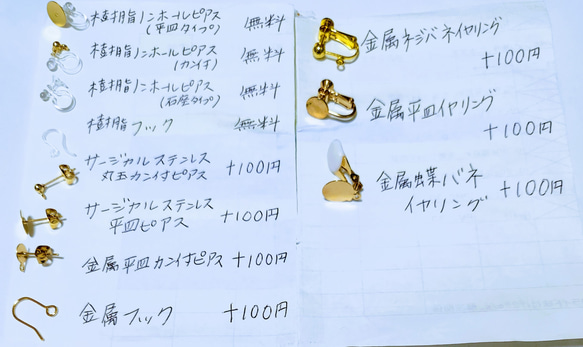 樹脂ノンホールピアス
(平皿タイプ)
無料
樹脂ノンホールピアス
(カン付)
無料
樹脂ノンホールピアス
(石座タイプ)
無料
樹脂フック
無料
サージカルステンレス
丸玉カン付ピアス
+100円
サージカルステンレス
平皿ピアス
+100円
金属平皿カン付ピアス +100円
金属フック
+100円
金属ネジバネイヤリング
+100円
金属平皿イヤリング
+100円
金属蝶バネ
イヤリング
+100円